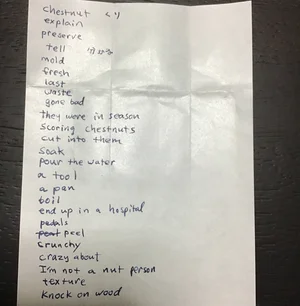 chestnut くり
explain
preserve
tell
mold
fresh
last
waste
gone bad
they were in season
scoring chestnuts
cut into them
soak
pour the water
a tool
a pan
boil
end up in a hospital
pedals
peel
crunchy
crazy about
I'm not a nut person
texture
knock on wood